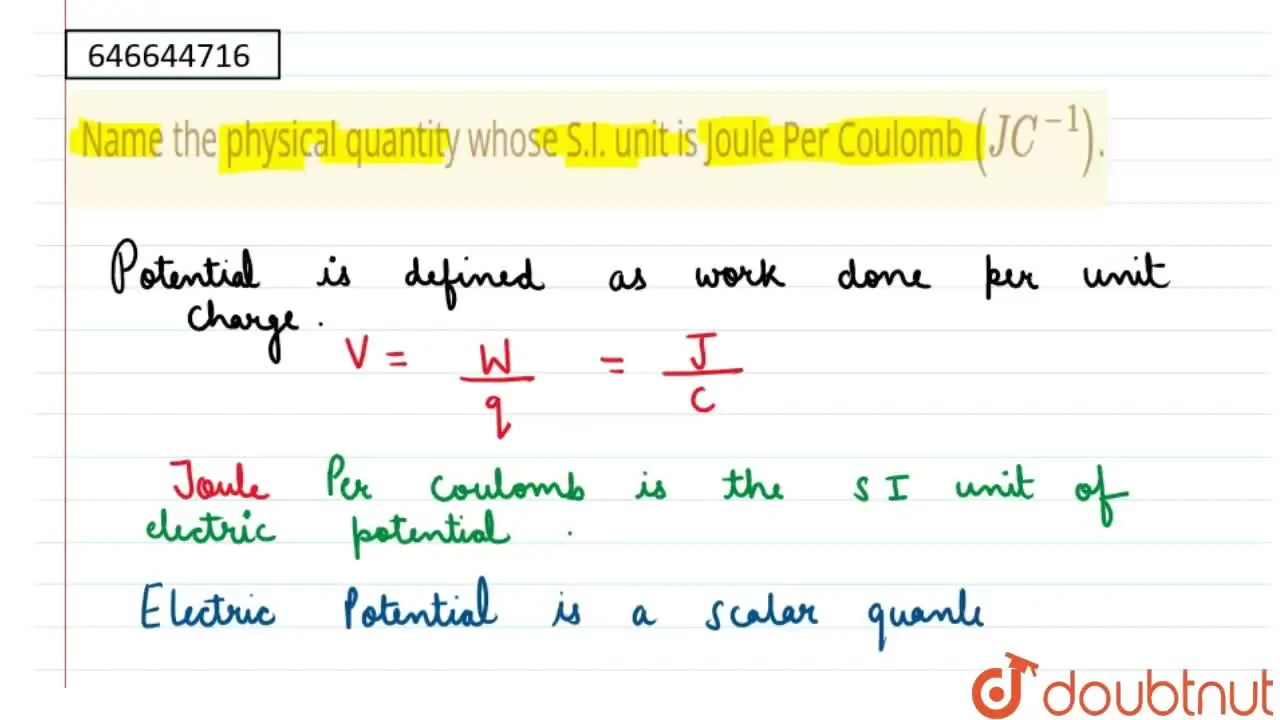 646644716
Name the physical quantity whose S.I. unit is Joule Per Coulomb (JC⁻¹).
Potential is defined as work done per unit
charge.
V = W/q = J/C
Joule Per coulomb is the SI unit of
electric potential.
Electric Potential is a scalar quante
doubtnut